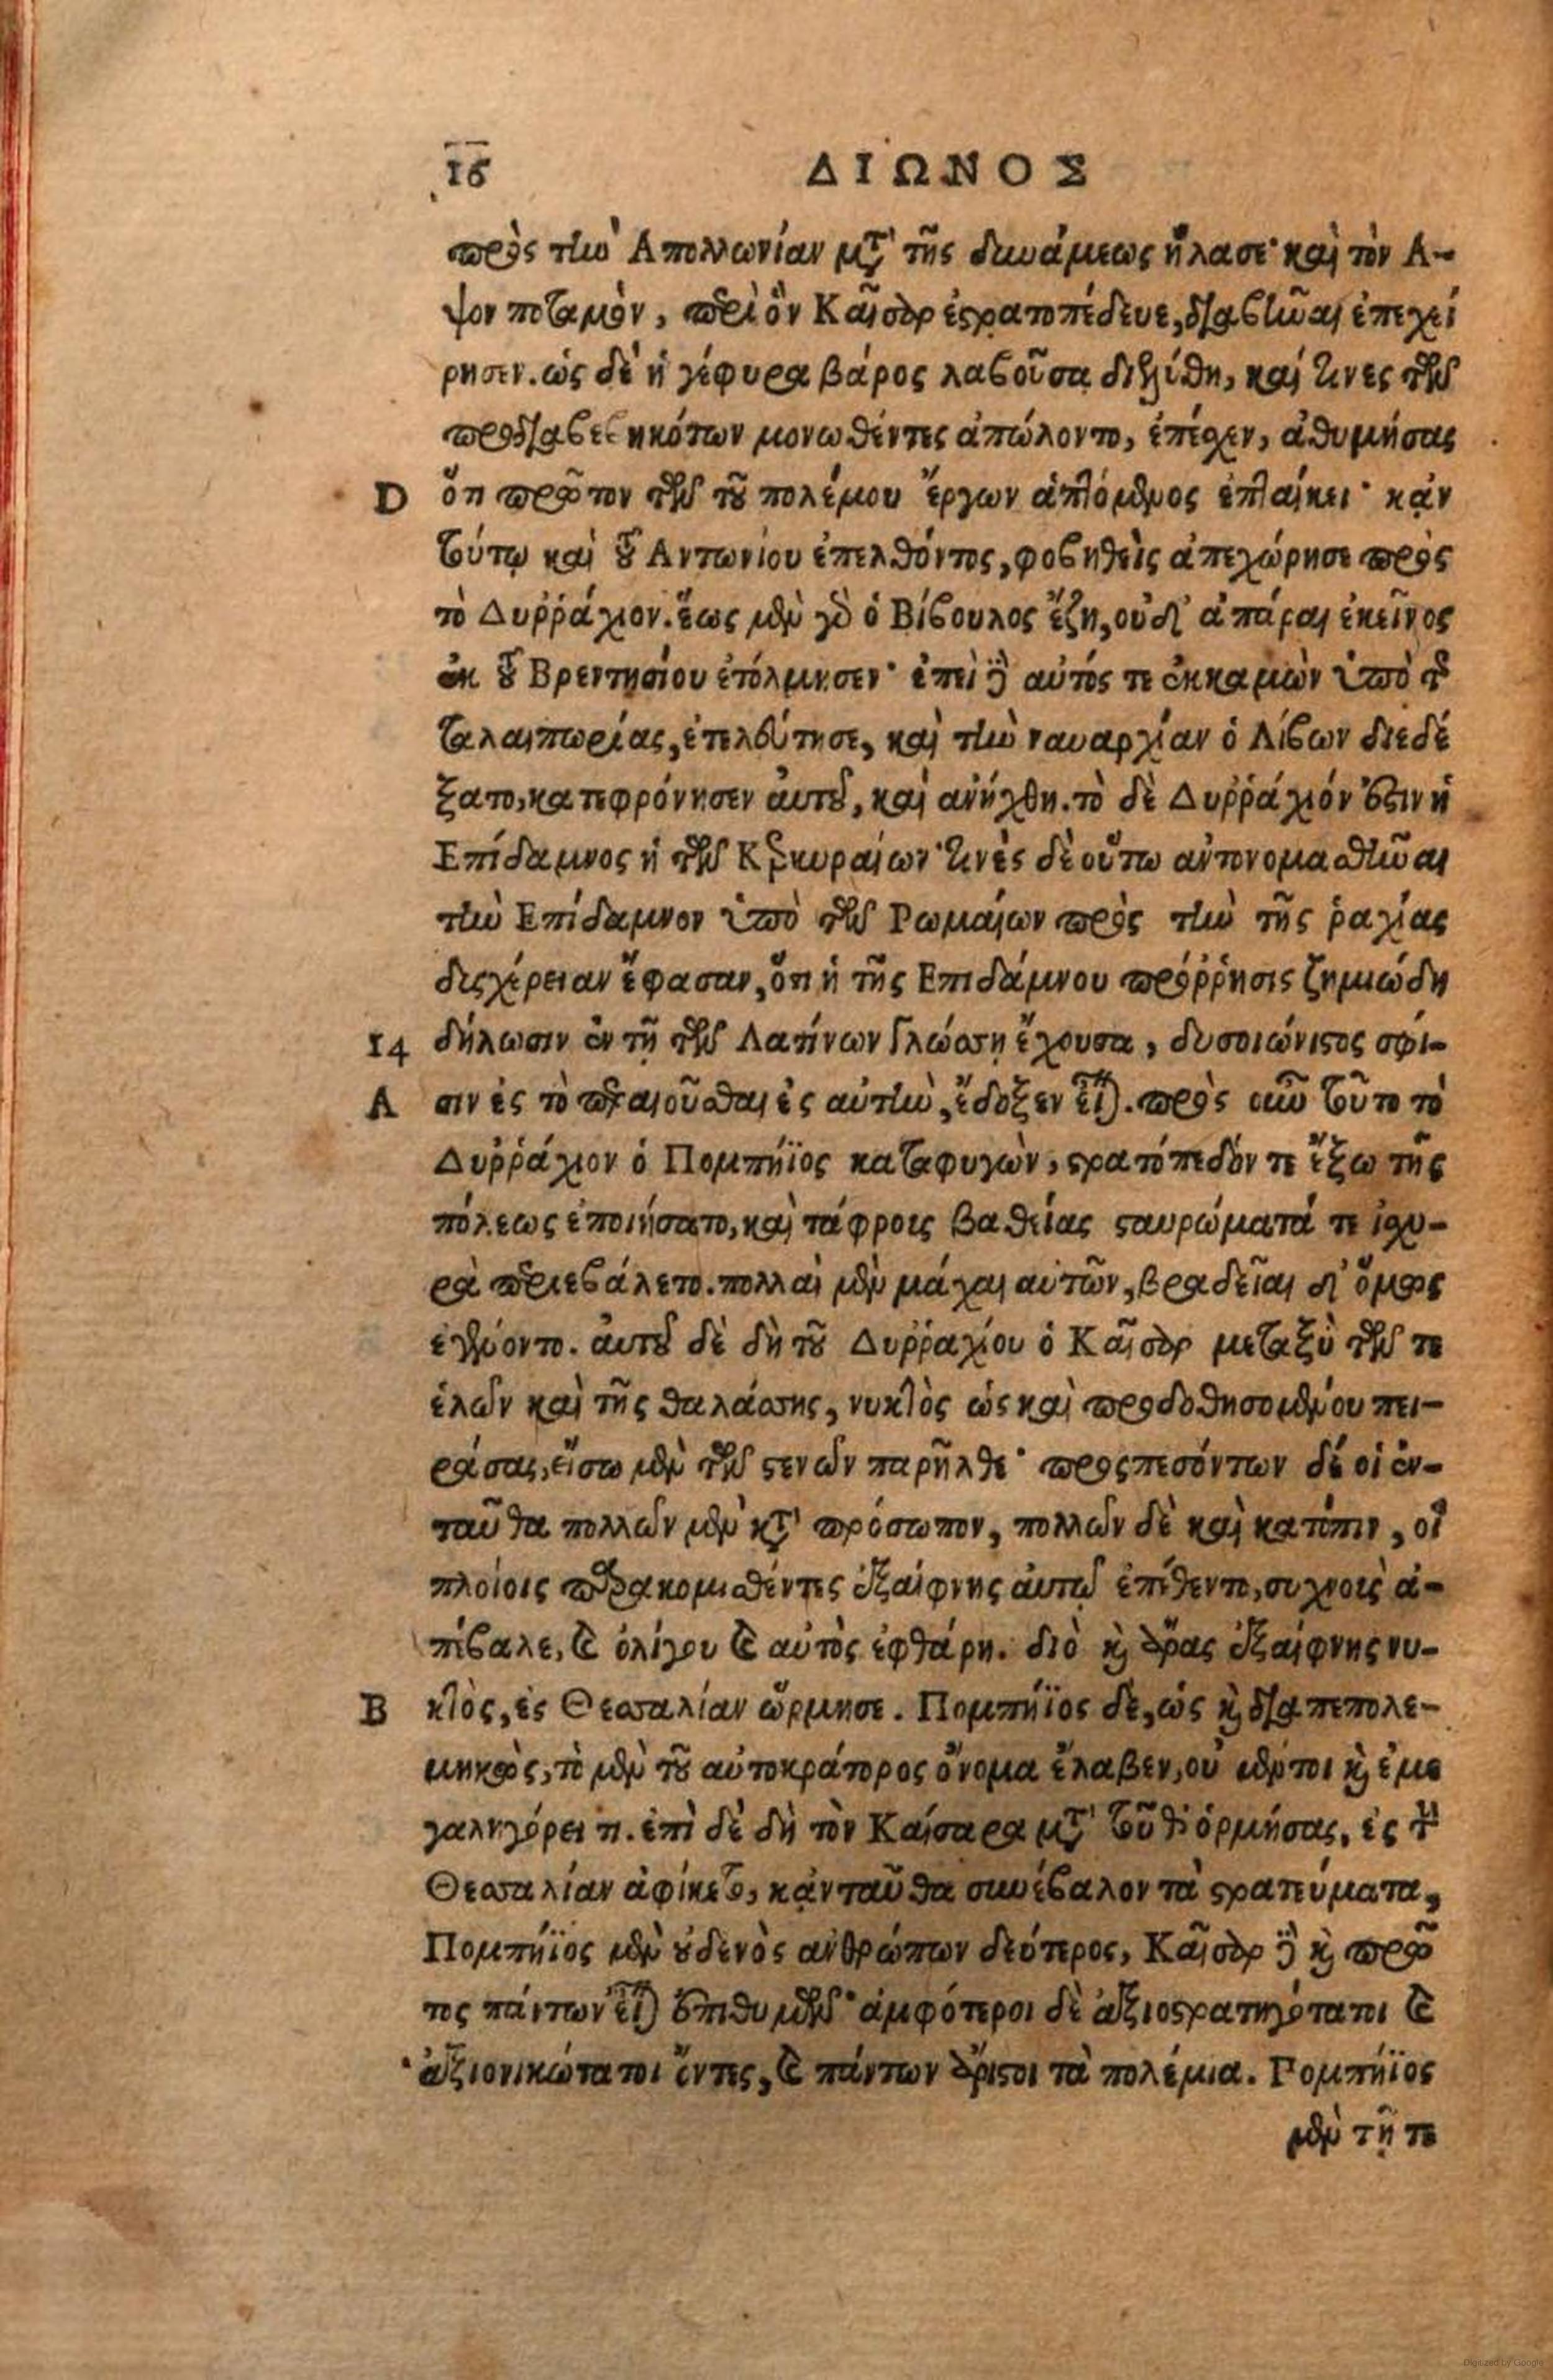 16 ΔΙΩΝΟΣ
πρὸς τὴν Απολλωνίαν μετὰ τῆς δυνάμεως ἤλασε· καὶ τὸν Α-
ψον ποταμὸν, περὶ ὃν Καῖσαρ ἐστρατοπέδευε, διαβῆναι ἐπεχεί
ρησεν. ὡς δὲ ἡ γέφυρα βάρος λαβοῦσα διελύθη, καί τινες τῶν
προδιαβεβηκότων μονωθέντες ἀπώλοντο, ἐπέσχεν, ἀθυμήσας
D ὅτι πρῶτον τῶν τοῦ πολέμου ἔργων ἁπτόμενος ἐπταίκει· κἀν
τούτῳ καὶ τοῦ Αντωνίου ἐπελθόντος, φοβηθεὶς ἀπεχώρησε πρὸς
τὸ Δυῤῥάχιον. ἕως μὲν γὰρ ὁ Βίβουλος ἔζη, οὐδ' ἀπάραι ἐκεῖνος
ἐκ τοῦ Βρεντησίου ἐτόλμησεν· ἐπεὶ δὲ αὐτός τε ἐκκαμὼν ὑπὸ τῆς
ταλαιπωρίας, ἐτελεύτησε, καὶ τὴν ναυαρχίαν ὁ Λίβων διεδέ
ξατο, κατεφρόνησεν αὐτοῦ, καὶ ἀνήχθη. τὸ δὲ Δυῤῥάχιόν ἐστιν ἡ
Επίδαμνος ἡ τῶν Κερκυραίων· τινὲς δὲ οὕτω ἀντονομασθῆναι
τὴν Επίδαμνον ὑπὸ τῶν Ρωμαίων πρὸς τὴν τῆς ῥαχίας
δυςχέρειαν ἔφασαν, ὅτι ἡ τῆς Επιδάμνου πρόῤῥησις ζημιώδη
14 δήλωσιν ἐν τῇ τῶν Λατίνων γλώσσῃ ἔχουσα, δυσοιώνιστος σφί-
A σιν ἐς τὸ περαιοῦσθαι ἐς αὐτὴν, ἔδοξεν εἶναι. πρὸς οὖν τοῦτο τὸ
Δυῤῥάχιον ὁ Πομπήϊος καταφυγὼν, στρατόπεδόν τε ἔξω τῆς
πόλεως ἐποιήσατο, καὶ τάφροις βαθείας σταυρώματά τε ἰσχυ-
ρὰ περιεβάλετο. πολλαὶ μὲν μάχαι αὐτῶν, βραδεῖαι δ' ὅμως
ἐγένοντο. αὐτοῦ δὲ δὴ τοῦ Δυῤῥαχίου ὁ Καῖσαρ μεταξὺ τῶν τε
ἑλῶν καὶ τῆς θαλάσσης, νυκτὸς ὡς καὶ προδοθησομένου πει-
ράσας, εἴσω μὲν τῶν στενῶν παρῆλθε· προςπεσόντων δέ οἱ ἐν-
ταῦθα πολλῶν μὲν κατὰ πρόσωπον, πολλῶν δὲ καὶ κατόπιν, οἳ
πλοίοις παρακομισθέντες ἐξαίφνης αὐτῷ ἐπέθεντο, συχνοὺς ἀ-
πέβαλε, καὶ ὀλίγου καὶ αὐτὸς ἐφθάρη. διὸ καὶ ἄρας ἐξαίφνης νυ-
B κτὸς, ἐς Θεσσαλίαν ὥρμησε. Πομπήϊος δὲ, ὡς καὶ διαπεπολε-
μηκὼς, τὸ μὲν τοῦ αὐτοκράτορος ὄνομα ἔλαβεν, οὐ μέντοι καὶ ἐμε
γαληγόρει τι. ἐπὶ δὲ δὴ τὸν Καίσαρα μετὰ τοῦθ' ὁρμήσας, ἐς τὴν
Θεσσαλίαν ἀφίκετο, κἀνταῦθα συνέβαλον τὰ στρατεύματα,
Πομπήϊος μὲν οὐδενὸς ἀνθρώπων δεύτερος, Καῖσαρ δὲ καὶ πρῶ
τος πάντων εἶναι ἐπιθυμῶν· ἀμφότεροι δὲ ἀξιοστρατηγότατοι καὶ
ἀξιονικώτατοι ὄντες, καὶ πάντων ἄριστοι τὰ πολέμια. Πομπήϊος
μὲν τῇ τε
Digitized by Google